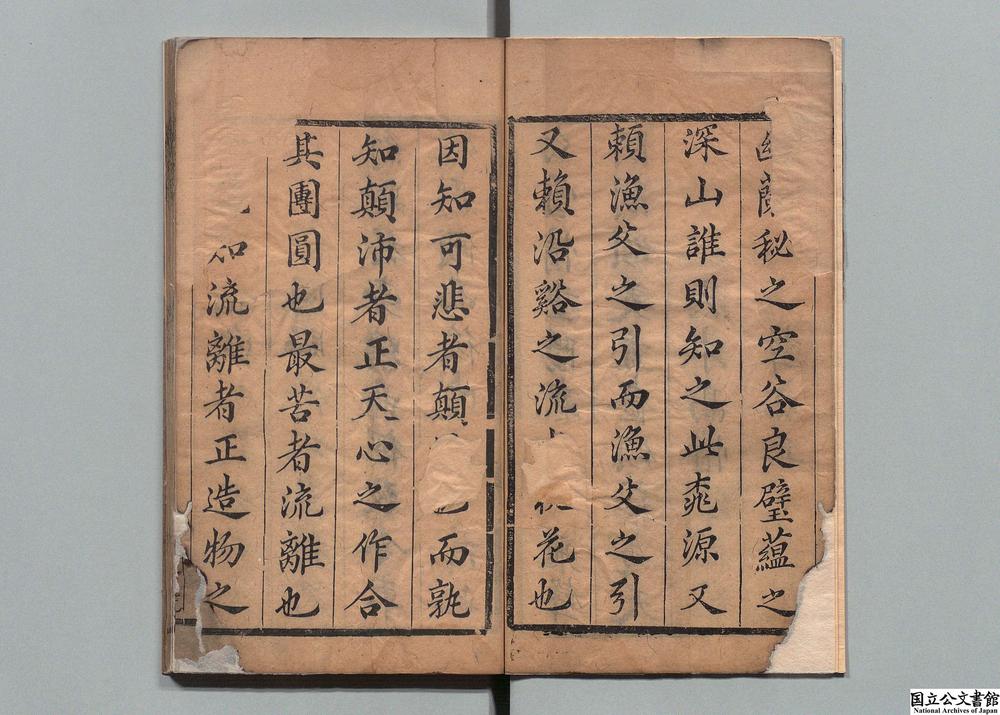 幽蘭秘之空谷良璧蘊之
深山誰則知之此桃源又
賴漁父之引而漁父之引
又賴沿谿之流 桃花也
因知可悲者顛 也而孰
知顛沛者正天心之作合
其團圓也最苦者流離也
知流離者正造物之
国立公文書館
National Archives of Japan